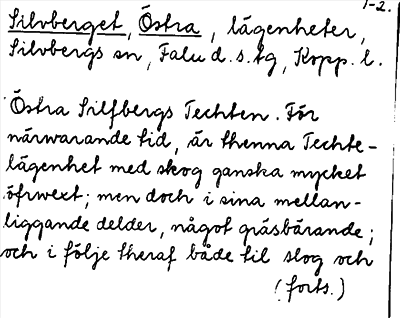 1-2.
Silvberget, Östra, lägenheter,
Silvbergs sn, Falu d.s.tg, Kopp. l.
Östra Silfbergs Techten. För
närwarande tid, är thenna Techte-
lägenhet med skog ganska mycket
öfrwext; men doch i sina mellan-
liggande delder, något gräsbärande;
och i följe theraf både til slog och
(forts.)